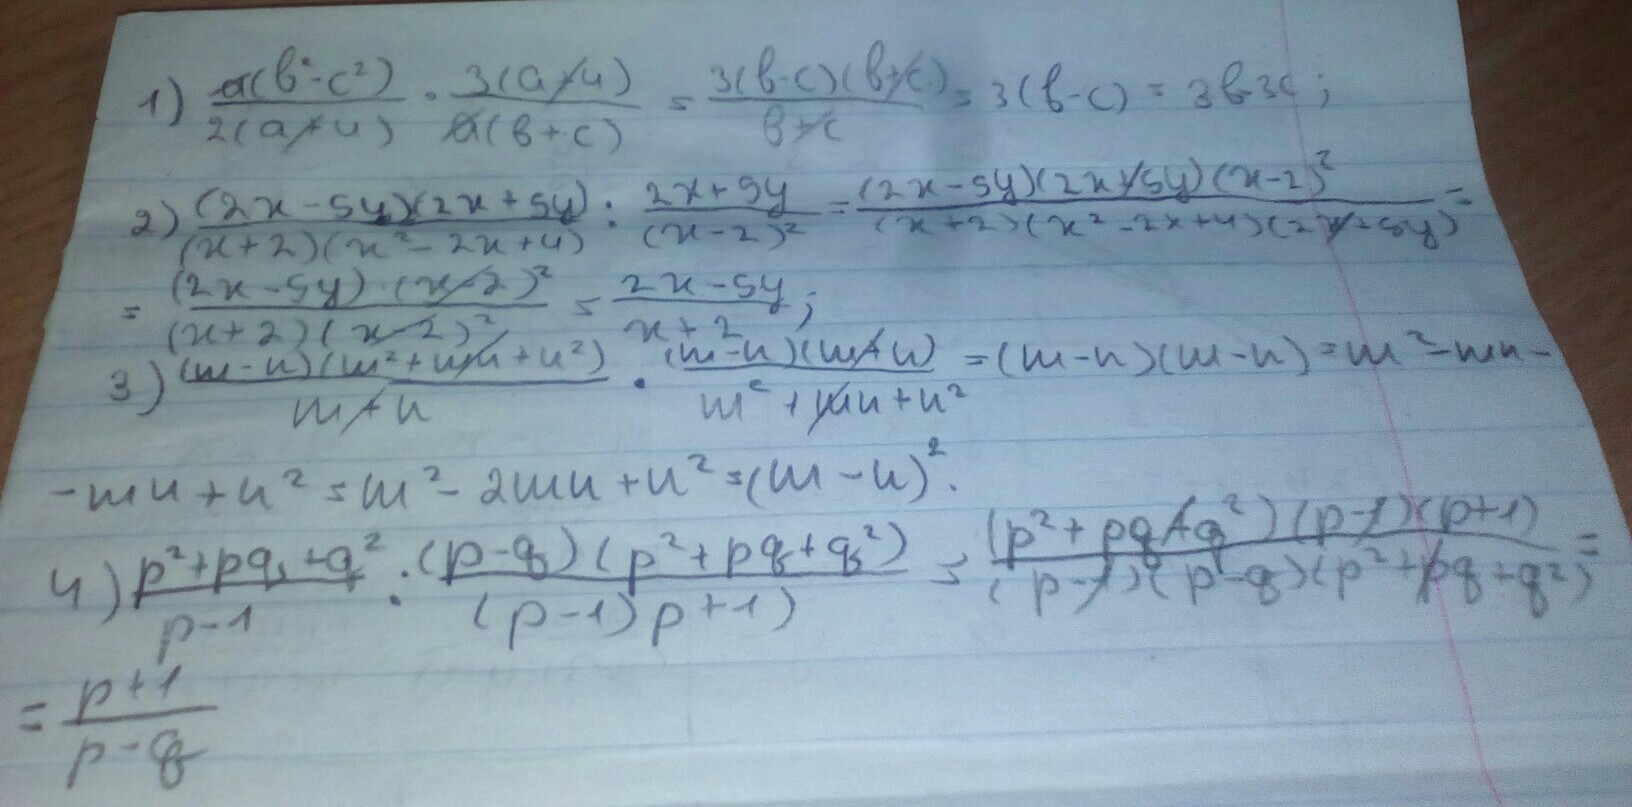 1) a(b²-c²)/2(a+4) · 3(a+4)/a(b+c) = 3(b-c)(b+c)/b+c = 3(b-c) = 3b-3c;
2) (2x-5y)(2x+5y)/(x+2)(x²-2x+4) : 2x+5y/(x-2)² = (2x-5y)(2x+5y)(x-2)²/(x+2)(x²-2x+4)(2x+5y) =
= (2x-5y)·(x-2)²/(x+2)(x-2)² = 2x-5y/x+2;
3) (m-n)(m²+mn+n²)/m+n · (m-n)(m+n)/m²+mn+n² = (m-n)(m-n) = m²-mn-
-mn+n² = m²-2mn+n² = (m-n)².
4) p²+pq+q²/p-1 : (p-q)(p²+pq+q²)/(p-1)p+1) = (p²+pq+q²)(p-1)(p+1)/(p-1)(p-q)(p²+pq+q²) =
= p+1/p-q